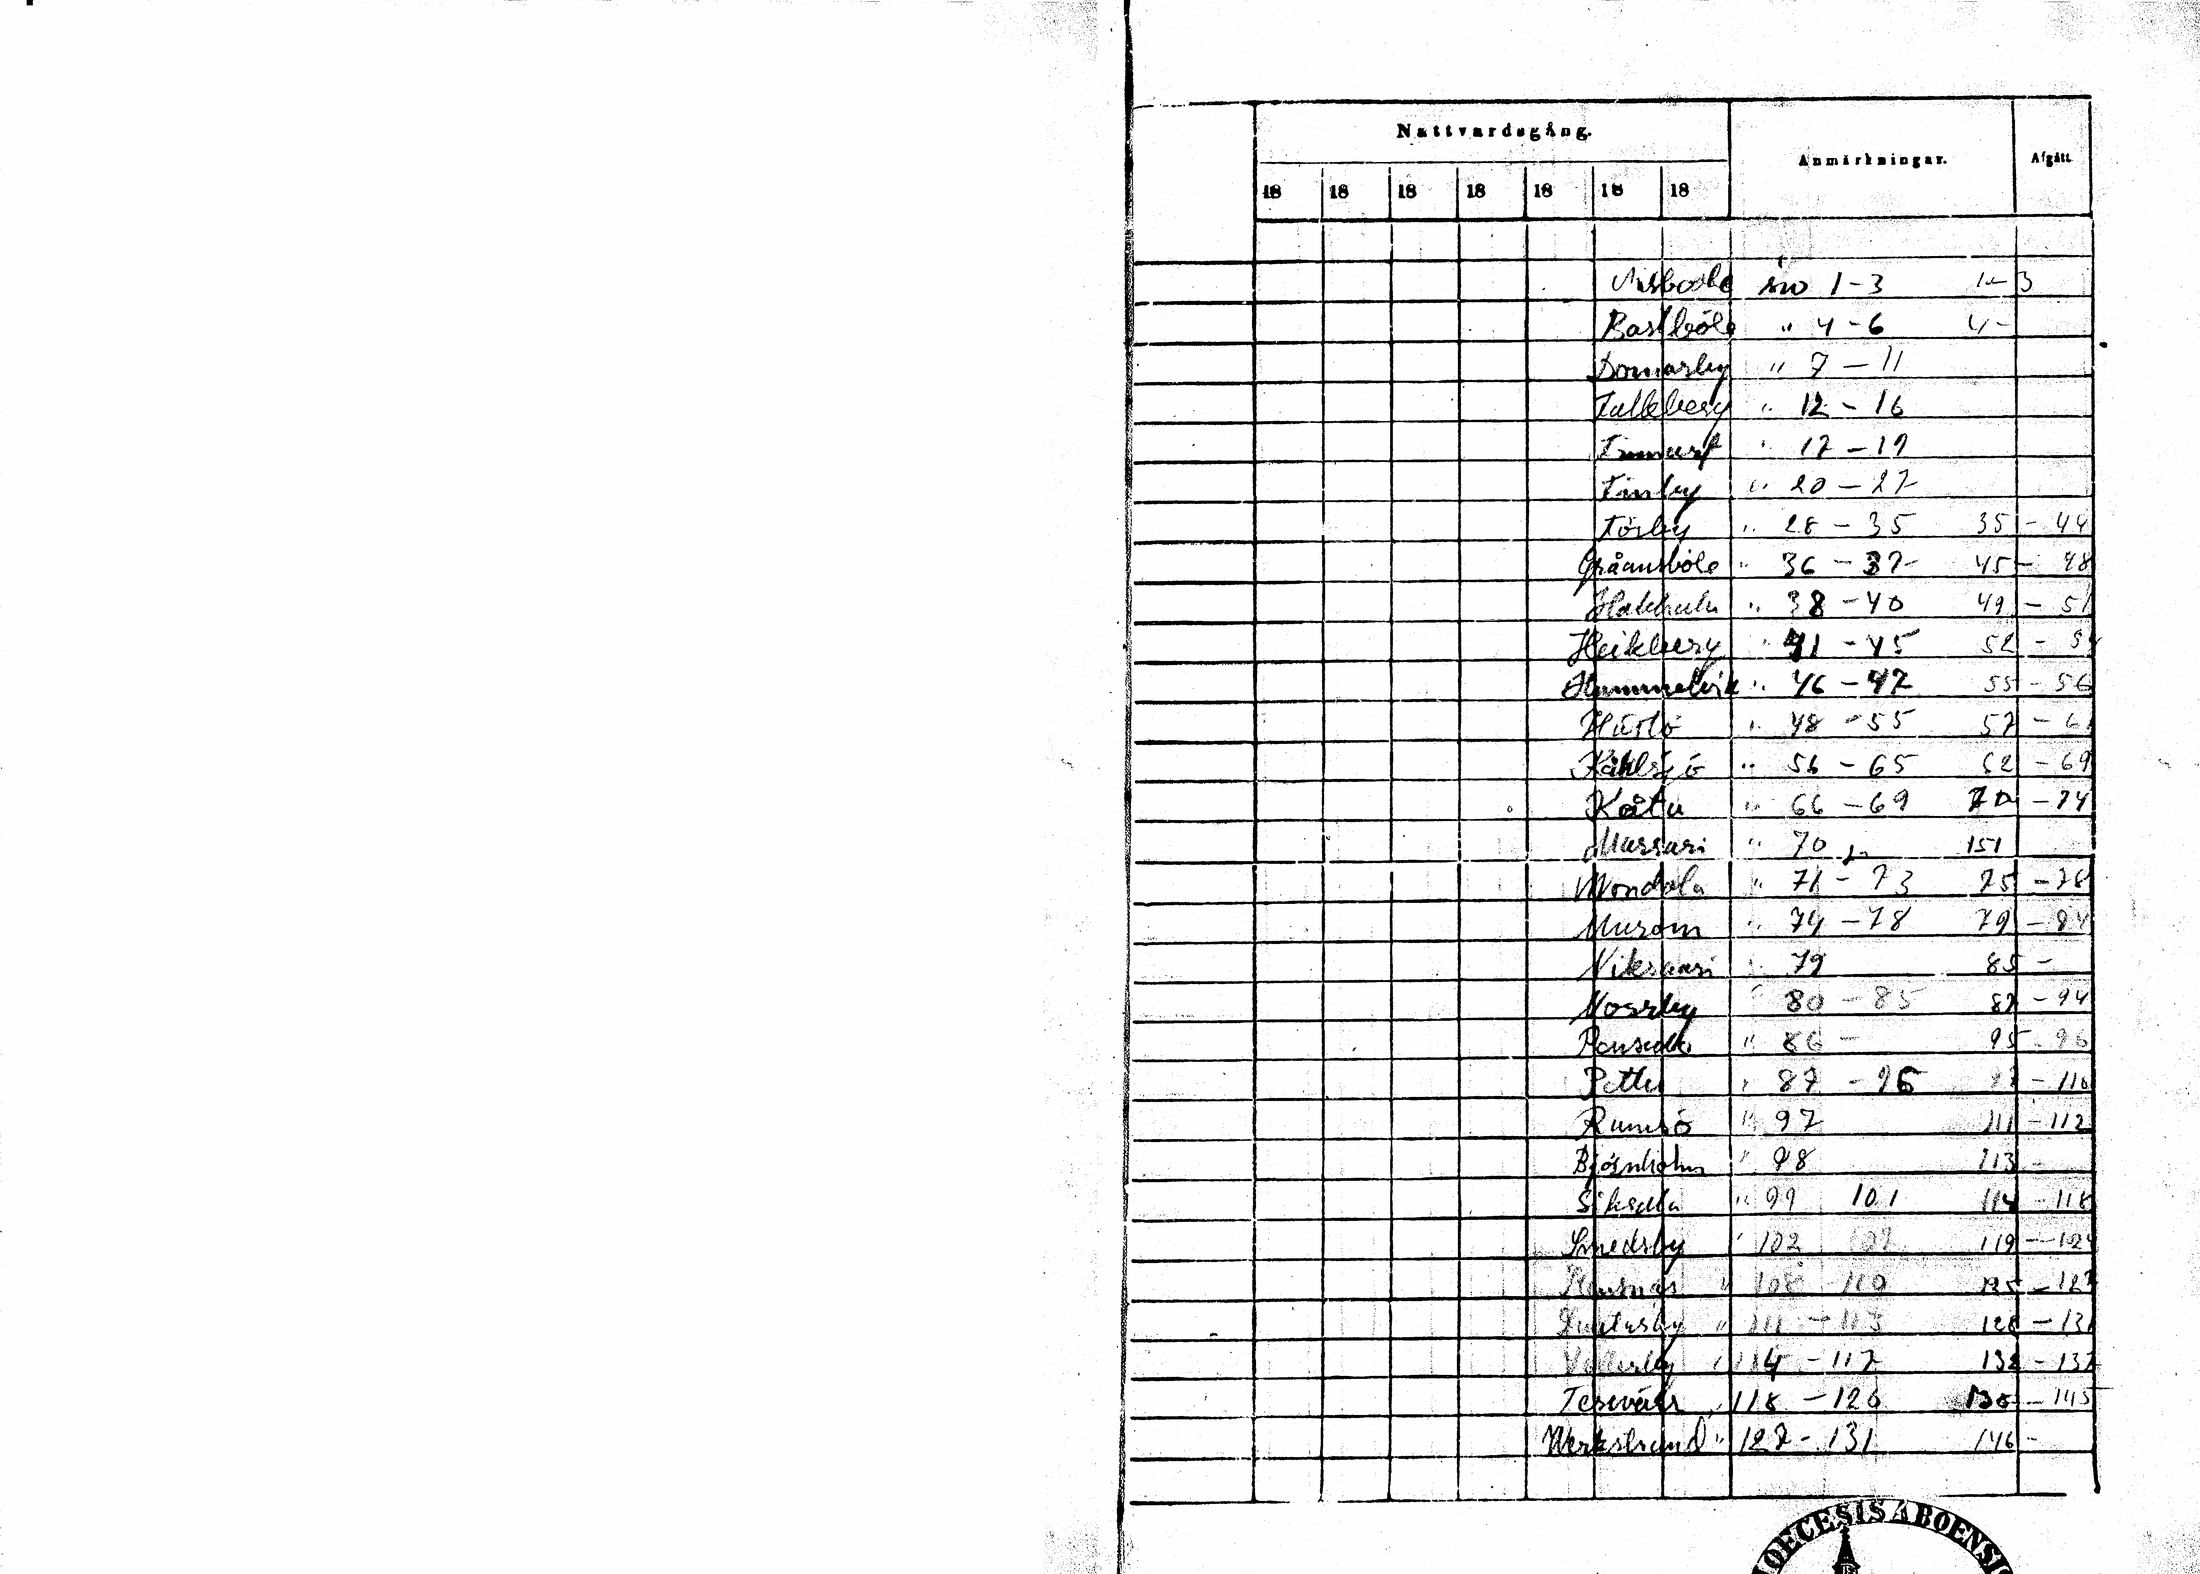 Nattvardsgång.
Anmärkningar.
Afgått.
18 18 18 18 18 18 18
Nisboole sio 1-3 1-3
Bastböle " 4-6 4-
Domarby " 7-11
Falleberg " 12-16
" 17-19
Finby " 20-27
Försby " 28-35 35-44
Gråansböle " 36-37 45-48
" 38-40 49-51
Heikberg " 41-45 52-54
Hummelvik " 46-47 55-56
Hüslö " 48-55 57-61
" 56-65 62-69
Kåtu " 66-69 70-74
Massari " 70 151
Mondola " 71-73 75-78
Murom " 74-78 79-84
Viksaari " 79 85-
" 80-85 87-94
" 86- 95-96
Pettu " 87-96 97-110
Rumsö " 97 111-112
Björnholm " 98 113-
Siksalla " 99 101 114-118
Smedsby " 102 107 119-124
" 108-110 125-127
" 111-113 128-131
" 114-117 132-137
" 118-126 -145
Werkstrand " 127-131 146-
DIOECESIS ABOENSIS